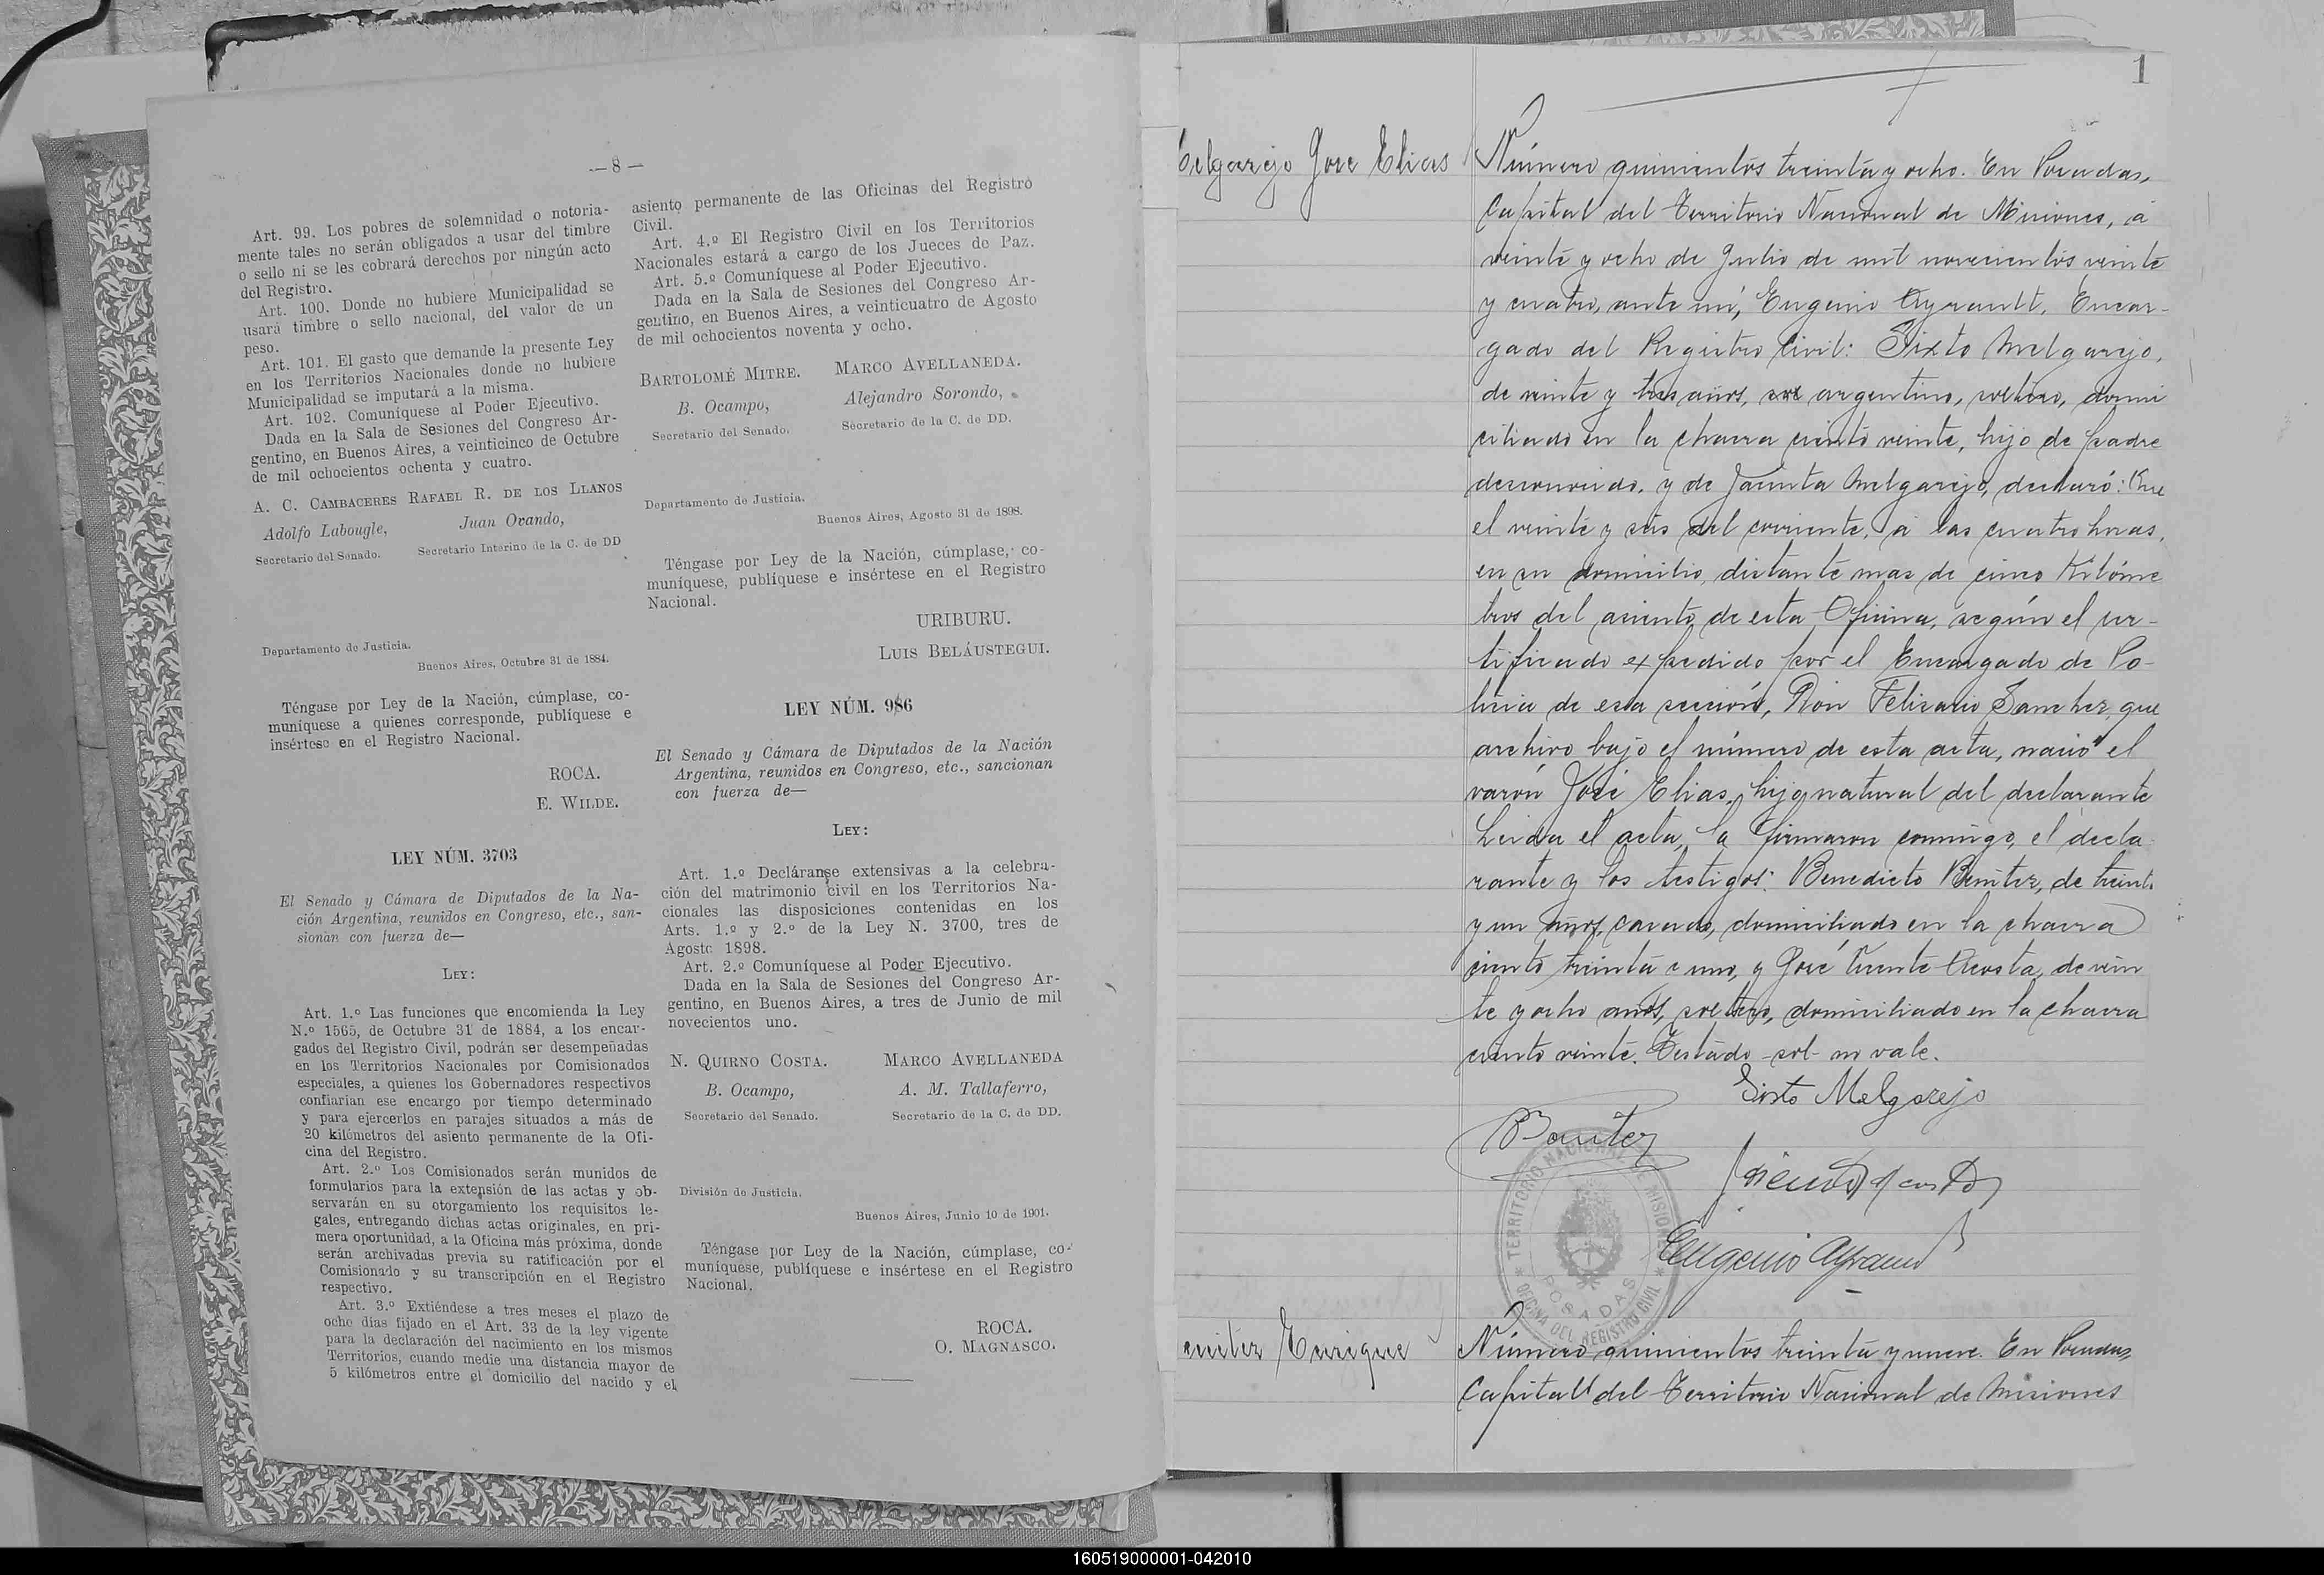 — 8 —
Art. 99. Los pobres de solemnidad o notoria-
mente tales no serán obligados a usar del timbre
o sello ni se les cobrará derechos por ningún acto
del Registro.
Art. 100. Donde no hubiere Municipalidad se
usará timbre o sello nacional, del valor de un
peso.
Art. 101. El gasto que demande la presente Ley
en los Territorios Nacionales donde no hubiere
Municipalidad se imputará a la misma.
Art. 102. Comuníquese al Poder Ejecutivo.
Dada en la Sala de Sesiones del Congreso Ar-
gentino, en Buenos Aires, a veinticinco de Octubre
de mil ochocientos ochenta y cuatro.
A. C. CAMBACERES RAFAEL R. DE LOS LLANOS
Adolfo Labougle, Juan Ovando,
Secretario del Senado. Secretario Interino de la C. de DD
Departamento de Justicia.
Buenos Aires, Octubre 31 de 1884.
Téngase por Ley de la Nación, cúmplase, co-
muníquese a quienes corresponde, publíquese e
insértese en el Registro Nacional.
ROCA.
E. WILDE.
LEY NÚM. 3703
El Senado y Cámara de Diputados de la Na-
ción Argentina, reunidos en Congreso, etc., san-
sionan con fuerza de—
LEY:
Art. 1.º Las funciones que encomienda la Ley
N.º 1565, de Octubre 31 de 1884, a los encar-
gados del Registro Civil, podrán ser desempeñadas
en los Territorios Nacionales por Comisionados
especiales, a quienes los Gobernadores respectivos
confiarían ese encargo por tiempo determinado
y para ejercerlos en parajes situados a más de
20 kilómetros del asiento permanente de la Ofi-
cina del Registro.
Art. 2.º Los Comisionados serán munidos de
formularios para la extensión de las actas y ob-
servarán en su otorgamiento los requisitos le-
gales, entregando dichas actas originales, en pri-
mera oportunidad, a la Oficina más próxima, donde
serán archivadas previa su ratificación por el
Comisionado y su transcripción en el Registro
respectivo.
Art. 3.º Extiéndese a tres meses el plazo de
ocho días fijado en el Art. 33 de la ley vigente
para la declaración del nacimiento en los mismos
Territorios, cuando medie una distancia mayor de
5 kilómetros entre el domicilio del nacido y el
asiento permanente de las Oficinas del Registro
Civil.
Art. 4.º El Registro Civil en los Territorios
Nacionales estará a cargo de los Jueces de Paz.
Art. 5.º Comuníquese al Poder Ejecutivo.
Dada en la Sala de Sesiones del Congreso Ar-
gentino, en Buenos Aires, a veinticuatro de Agosto
de mil ochocientos noventa y ocho.
BARTOLOMÉ MITRE. MARCO AVELLANEDA.
B. Ocampo, Alejandro Sorondo,
Secretario del Senado. Secretario de la C. de DD.
Departamento de Justicia.
Buenos Aires, Agosto 31 de 1898.
Téngase por Ley de la Nación, cúmplase, co-
muníquese, publíquese e insértese en el Registro
Nacional.
URIBURU.
LUIS BELÁUSTEGUI.
LEY NÚM. 986
El Senado y Cámara de Diputados de la Nación
Argentina, reunidos en Congreso, etc., sancionan
con fuerza de—
LEY:
Art. 1.º Decláranse extensivas a la celebra-
ción del matrimonio civil en los Territorios Na-
cionales las disposiciones contenidas en los
Arts. 1.º y 2.º de la Ley N. 3700, tres de
Agosto 1898.
Art. 2.º Comuníquese al Poder Ejecutivo.
Dada en la Sala de Sesiones del Congreso Ar-
gentino, en Buenos Aires, a tres de Junio de mil
novecientos uno.
N. QUIRNO COSTA. MARCO AVELLANEDA
B. Ocampo, A. M. Tallaferro,
Secretario del Senado. Secretario de la C. de DD.
División de Justicia.
Buenos Aires, Junio 10 de 1901.
Téngase por Ley de la Nación, cúmplase, co-
muníquese, publíquese e insértese en el Registro
Nacional.
ROCA.
O. MAGNASCO.
1
elgarejo José Elias
Número quinientos treinta y ocho. En Posadas,
Capital del Territorio Nacional de Misiones, á
veinte y ocho de Julio de mil novecientos veinte
y cuatro, ante mí, Eugenio Ayrault, Encar-
gado del Registro Civil: Sixto Melgarejo,
de veinte y tres años, sol argentino, soltero, domi
ciliado en la chacra ciento veinte, hijo de padre
desconocido, y de Jacinta Melgarejo, declaró: Que
el veinte y seis del corriente, á las cuatro horas,
en su domicilio, distante mas de cinco Kilóme
tros del asiento de esta Oficina, según el cer-
tificado expedido por el Encargado de Po-
licia de esa sección, Don Felisario Sanchez, que
archivo bajo el número de esta acta, nació el
varón José Elias, hijo natural del declarante
Leida el acta, la firmaron conmigo, el decla-
rante y los testigos: Benedicto Benitez, de treinta
y un años, casado, domiciliado en la chacra
ciento treinta e uno, y José Vicente Acosta, de vein
te y ocho años, soltero, domiciliado en la chacra
ciento veinte. Testado -sol- no vale.
Sixto Melgarejo
B Benitez
J Vicente Acosta
Eugenio Ayrault
TERRITORIO NACIONAL DE MISIONES
POSADAS
OFICINA DEL REGISTRO CIVIL
enitez Enrique
Número quinientos treinta y nueve. En Posadas,
Capital del Territorio Nacional de Misiones
160519000001-042010